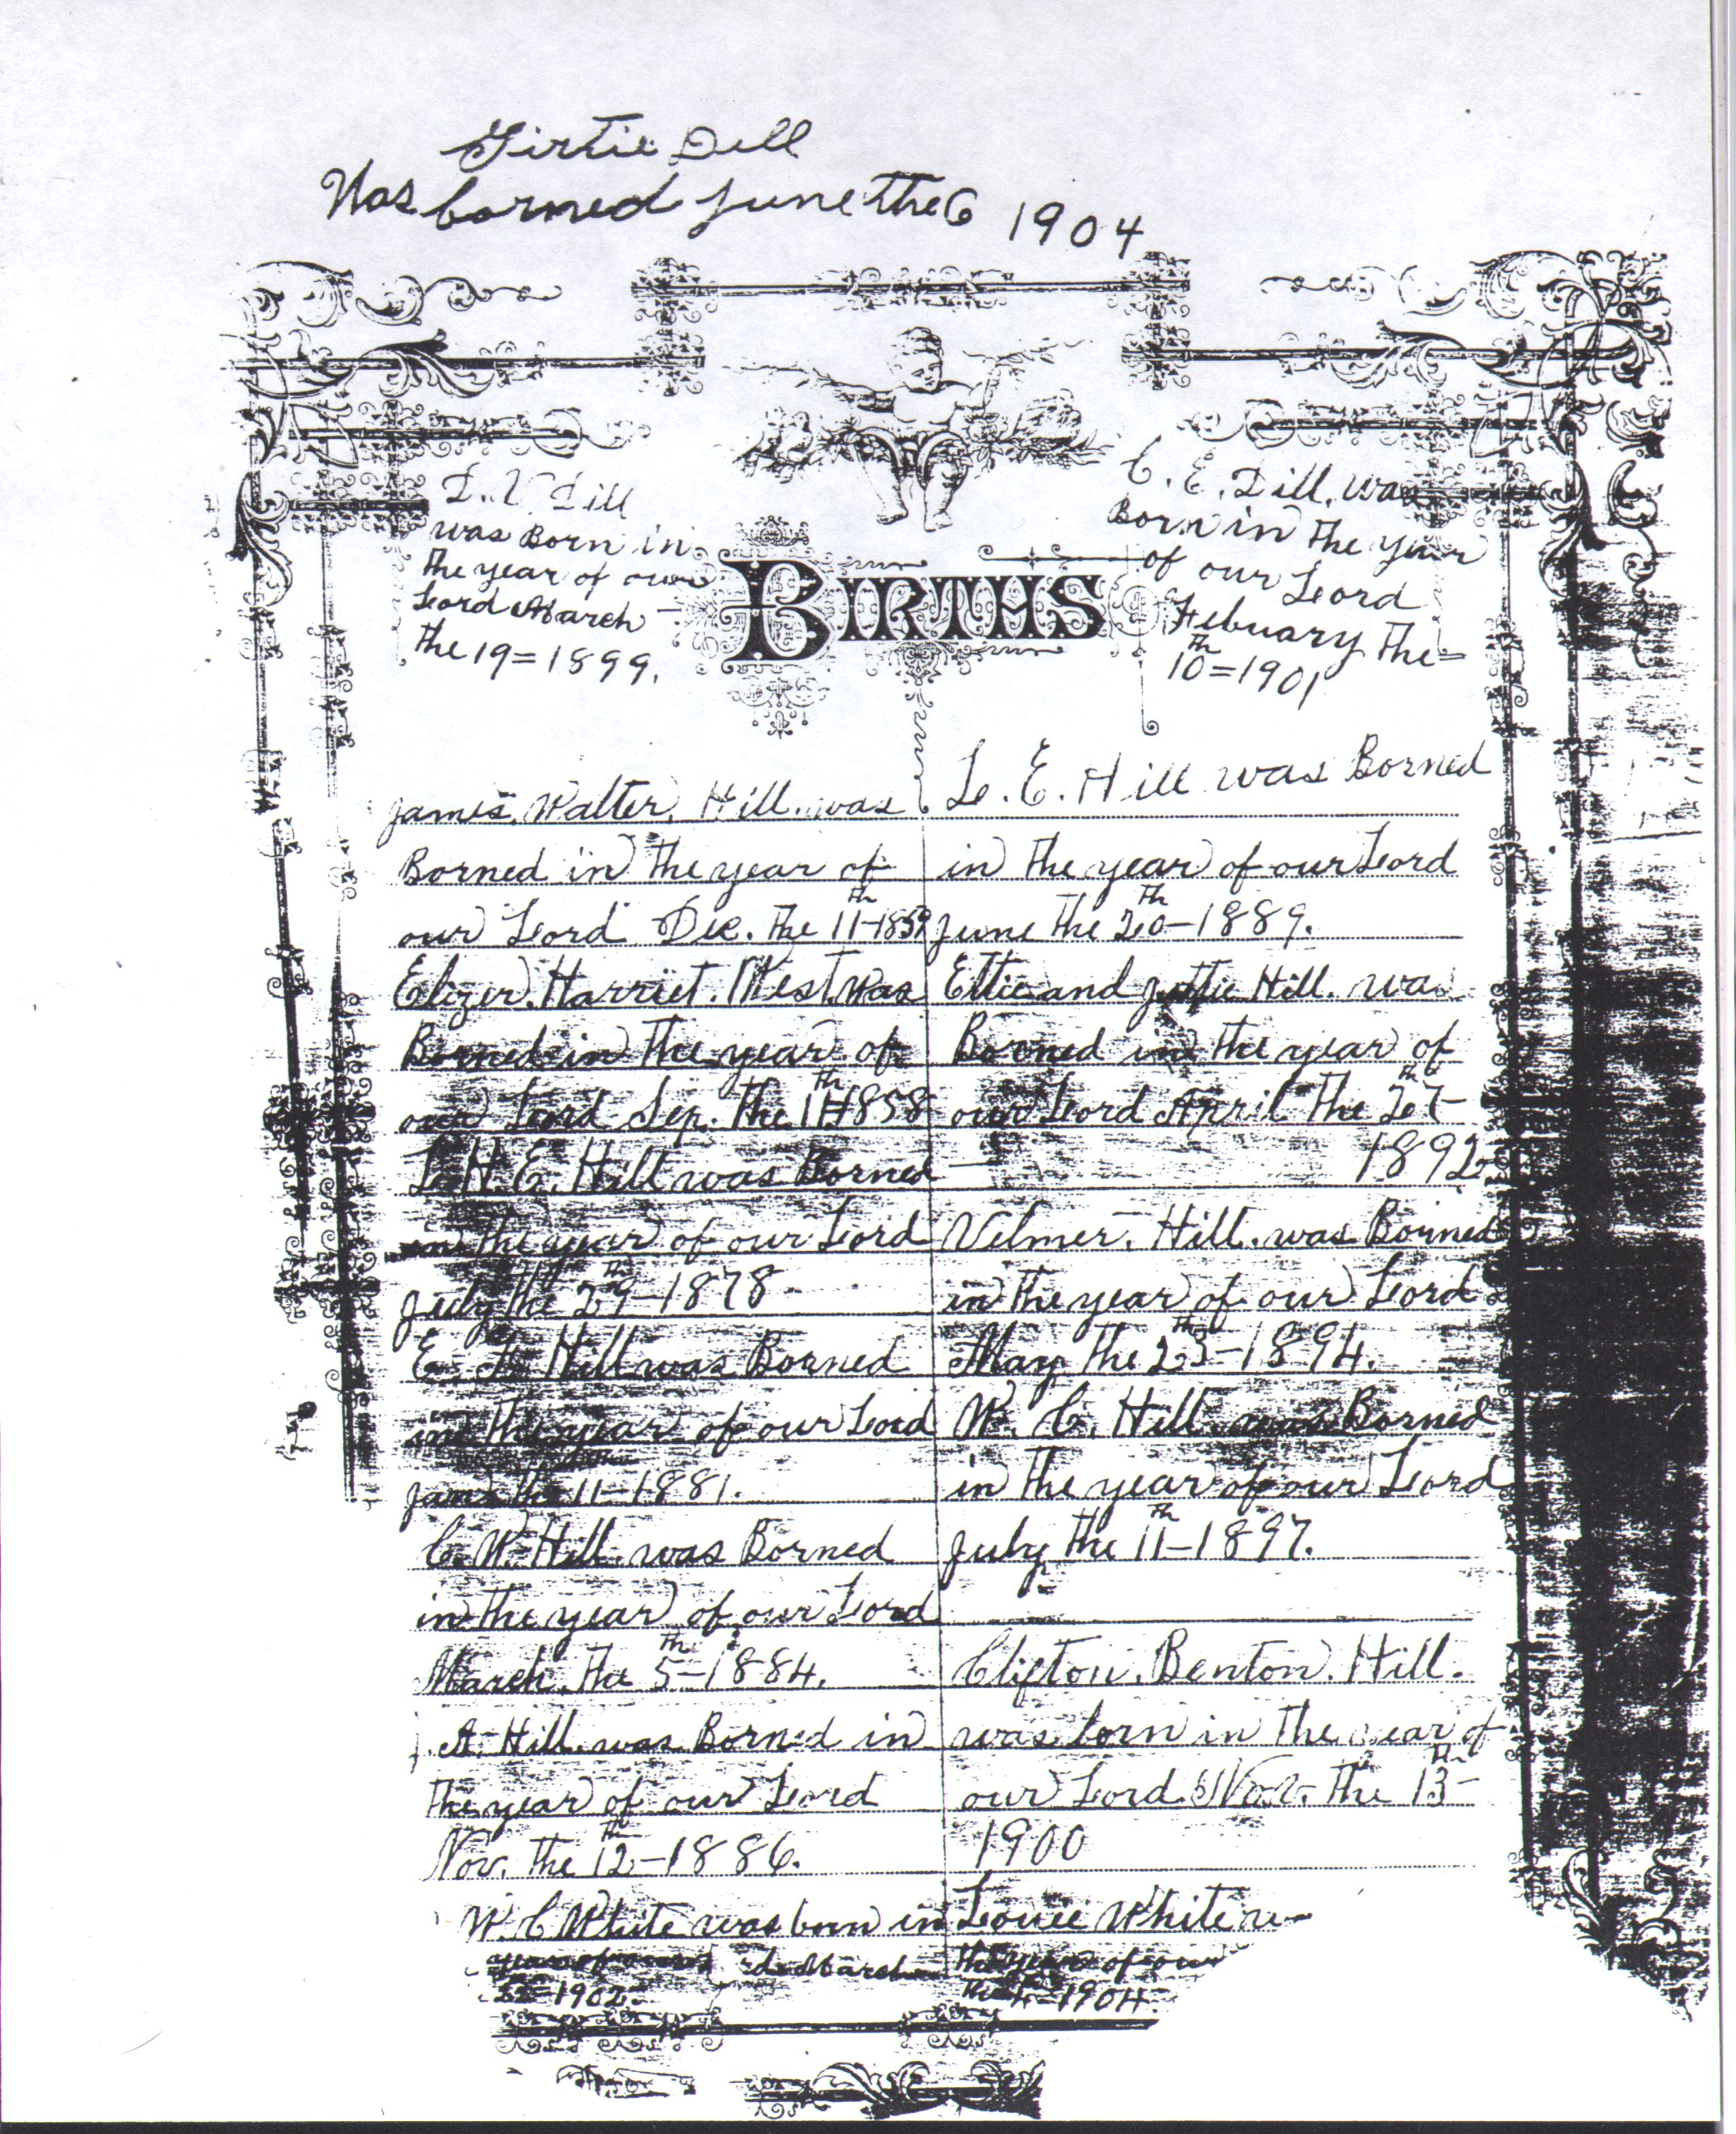 Girtie Dill
Was borned June the 6 1904
I. V Dill
was Born in
the year of our
Lord March
the 19=1899.
C. E. Dill. was
Born in the year
of our Lord
Febuary the=
10th=1901
BIRTHS
James. Walter. Hill. was
Borned in the year of
our Lord Dec. the 11th-1859
Elizer. Harriet. West. was
Borned in the year of
our Lord Sep. the 1858
L. H. E. Hill was Borned
in the year of our Lord
July the 29th-1878-
E. Hill was Borned
in the year of our Lord
the 11-1881.
C. W. Hill. was Borned
in the year of our Lord
March. the 5th-1884.
A. Hill. was Borned in
the year of our Lord
Nov. the 12th-1886.
W. C White was born in
year of March
1902.
L. E. Hill was Borned
in the year of our Lord
June the 20th-1889.
Ettie and Hill. was
Borned in the year of
our Lord April the 27th-
1892
Velmer. Hill. was Borned
in the year of our Lord
May the 23th-1894.
W. C. Hill was Borned
in the year of our Lord
July the 11th-1897.
Clifton. Benton. Hill.
was born in the year of
our Lord Nov. the 13th-
1900
White
the year of our
1904.